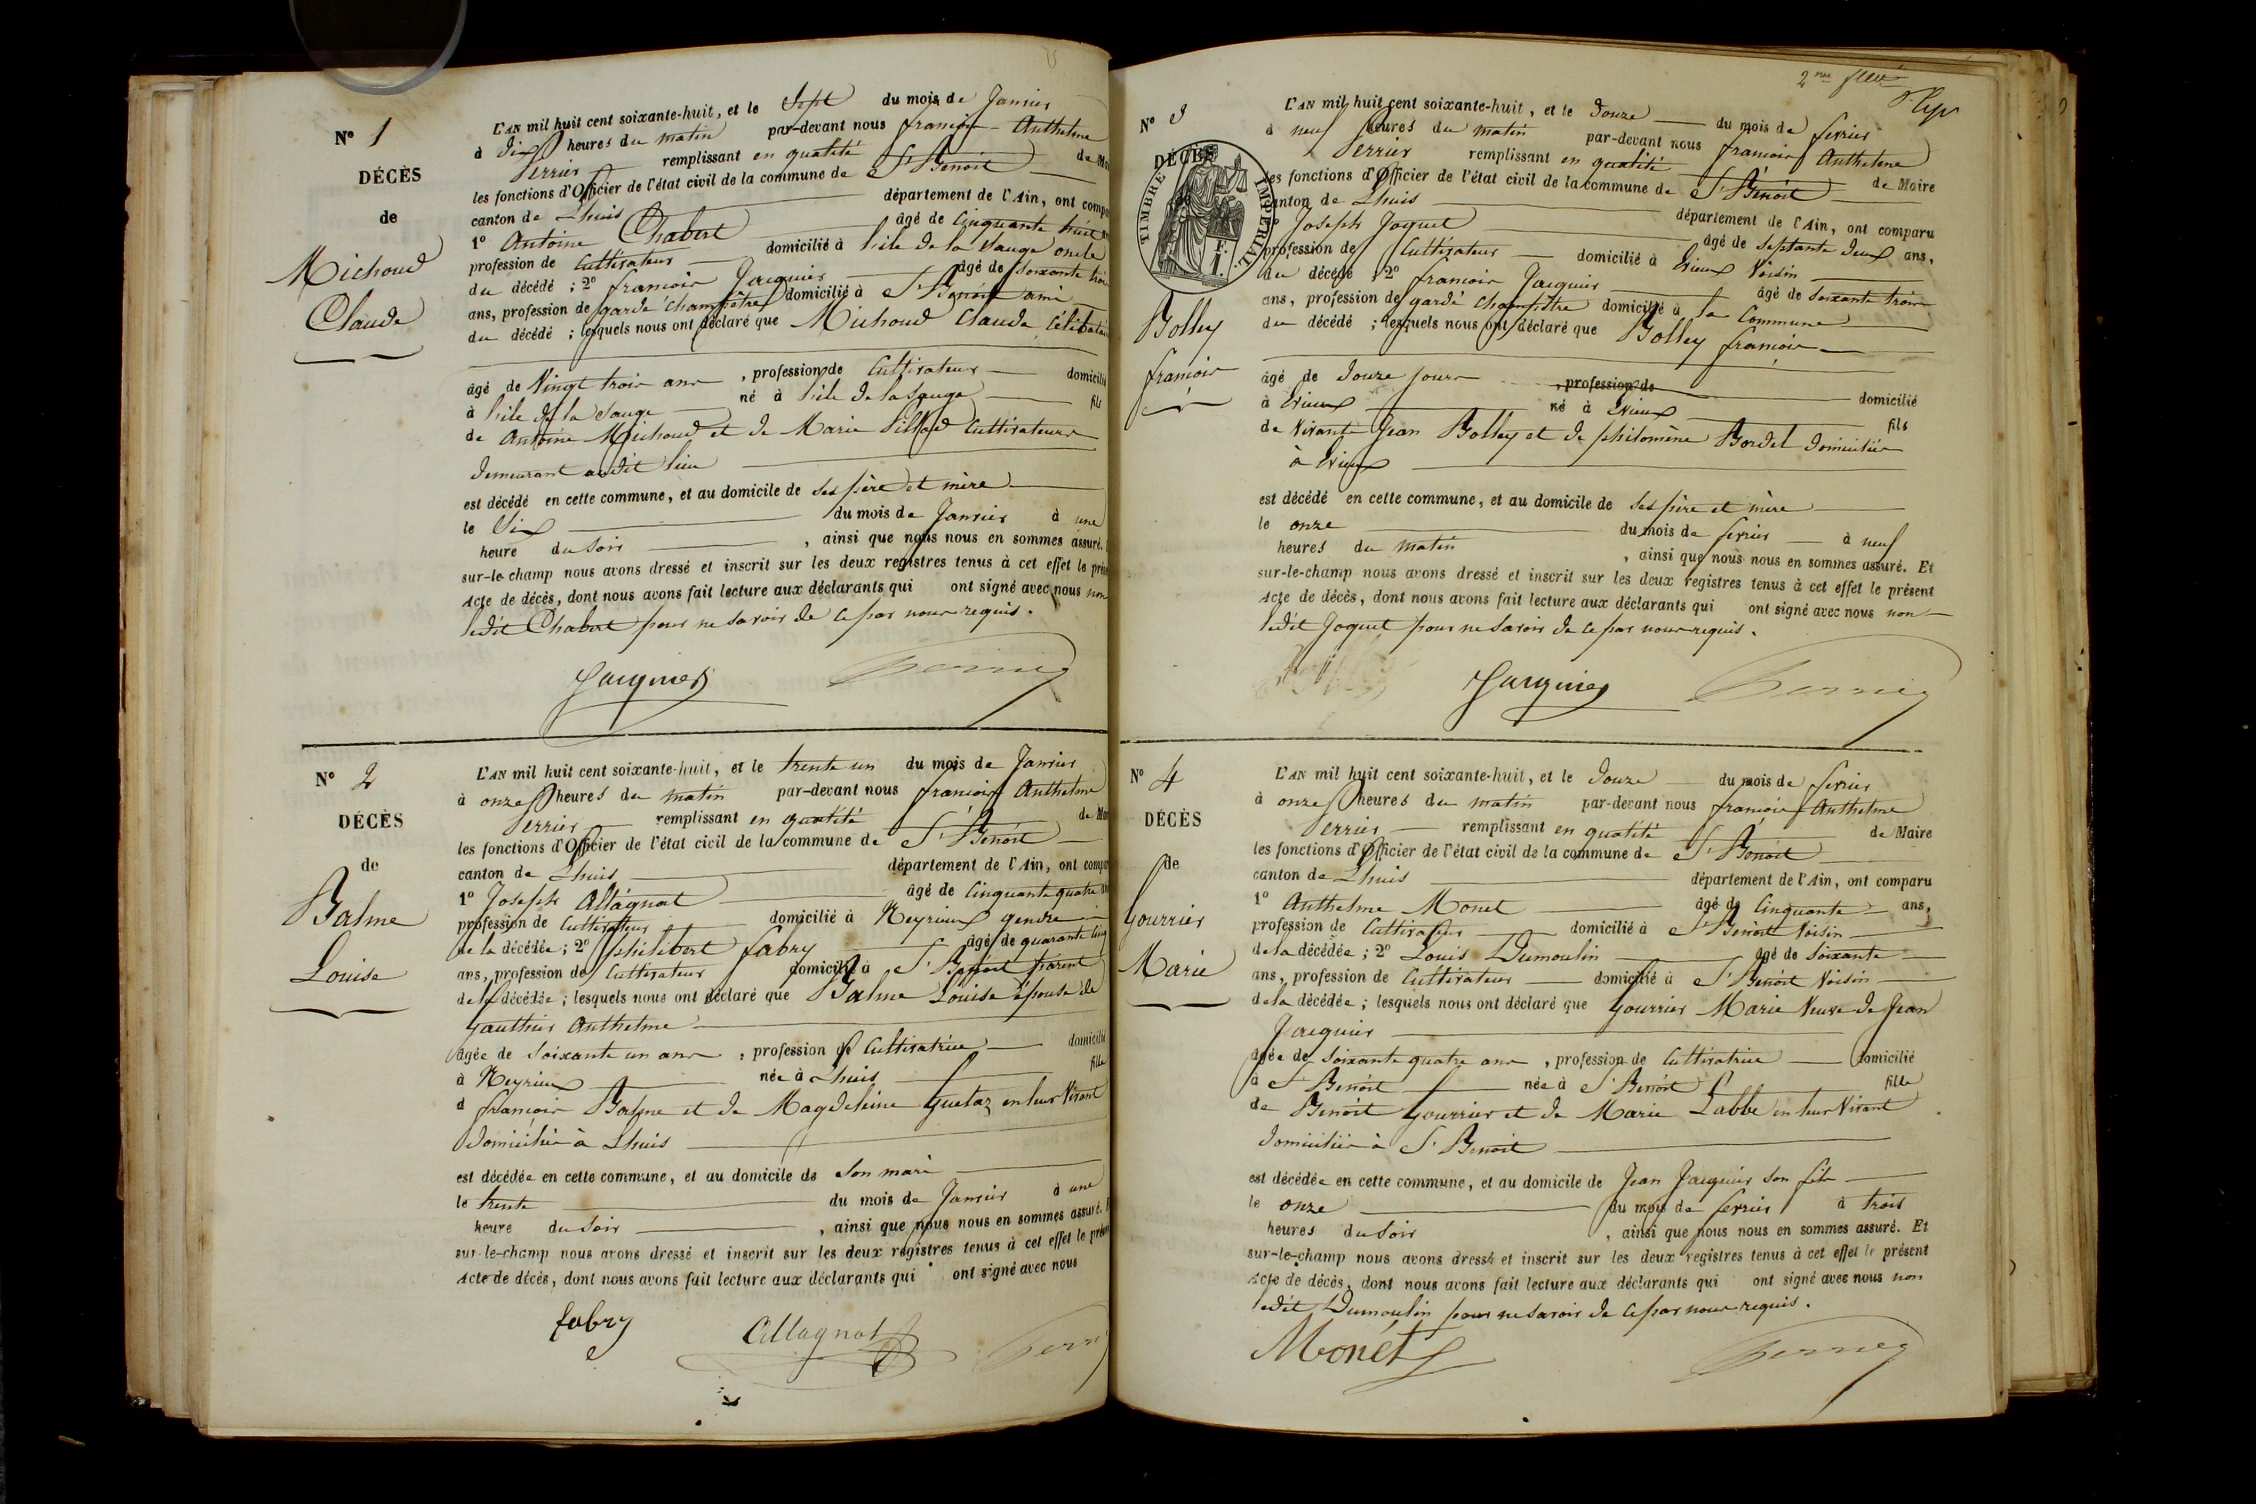 N° 1
DÉCÈS
de
Michoud
Claude
L'AN mil huit cent soixante-huit, et le Sept du mois de Janvier
à dix heures du matin par-devant nous françois Anthelme
Perrier remplissant en qualité de
les fonctions d'Officier de l'état civil de la commune de St Benoit
canton de Lhuis département de l'Ain, ont
1° Antoine Chabert âgé de Cinquante huit
profession de Cultivateur domicilié à l'ile de la Sauge oncle
du décédé ; 2° francois Jacquier âgé de Soixante trois
ans, profession de garde champêtre domicilié à St Benoit ami
du décédé ; lesquels nous ont déclaré que Michoud Claude Célibataire
âgé de Vingt trois ans , profession de Cultivateur domicilié
à l'ile de la Sauge né à l'ile de la Sauge fils
de Antoine Michoud et de Marie Cultivateurs
demeurant audit lieu
est décédé en cette commune, et au domicile de ses père et mère
le Six du mois de Janvier à une
heure du soir , ainsi que nous nous en sommes assuré.
sur-le-champ nous avons dressé et inscrit sur les deux registres tenus à cet effet le
acte de décès, dont nous avons fait lecture aux déclarants qui ont signé avec nous non
ledit Chabert pour ne savoir de ce par nous requis.
Jacquier Perrier
N° 2
DÉCÈS
de
Balme
Louise
L'AN mil huit cent soixante-huit, et le trente un du mois de Janvier
à onze heures du matin par-devant nous francois Anthelme
Perrier remplissant en qualité de
les fonctions d'Officier de l'état civil de la commune de St Benoit
canton de Lhuis département de l'Ain, ont
1° Joseph Allagnat âgé de Cinquante quatre
profession de Cultivateur domicilié à Neyrieux gendre
de la décédée ; 2° philibert fabry âgé de quarante cinq
ans, profession de Cultivateur domicilié à St Benoit parent
de la décédée ; lesquels nous ont déclaré que Balme Louise épouse de
Gauthier Anthelme
âgée de soixante un ans , profession de Cultivatrice domicilié
à Neyrieux née à Lhuis fille
d francois Balme et de Magdeleine Guetaz en leur Vivant
domiciliés à Lhuis
est décédée en cette commune, et au domicile de son mari
le trente du mois de Janvier à une
heure du soir , ainsi que nous nous en sommes assuré.
sur-le-champ nous avons dressé et inscrit sur les deux registres tenus à cet effet le
acte de décès, dont nous avons fait lecture aux déclarants qui ont signé avec nous
fabry Allagnat
2me
N° 3
DÉCÈS
TIMBRE IMPÉRIAL
Bolley
francois
L'AN mil huit cent soixante-huit, et le Douze du mois de fevrier
à neuf heures du matin par-devant nous francois Anthelme
Perrier remplissant en qualité de Maire
les fonctions d'Officier de l'état civil de la commune de St Benoit
canton de Lhuis département de l'Ain, ont comparu
1° Joseph Joquet âgé de septante deux ans,
profession de Cultivateur domicilié à Evieux Voisin
du décédé ; 2° francois Jacquier âgé de soixante trois
ans, profession de garde champêtre domicilié à la Commune
du décédé ; lesquels nous ont déclaré que Bolley francois
âgé de douze jours , profession de domicilié
à Evieux né à Evieux fils
de Vivants Jean Bolley et de philomène Bordel domiciliés
à Evieux
est décédé en cette commune, et au domicile de ses père et mère
le onze du mois de fevrier à neuf
heures du matin , ainsi que nous nous en sommes assuré. Et
sur-le-champ nous avons dressé et inscrit sur les deux registres tenus à cet effet le présent
acte de décès, dont nous avons fait lecture aux déclarants qui ont signé avec nous non
ledit Joquet pour ne savoir de ce par nous requis.
Jacquier Perrier
N° 4
DÉCÈS
de
Gourrier
Marie
L'AN mil huit cent soixante-huit, et le Douze du mois de fevrier
à onze heures du matin par-devant nous francois Anthelme
Perrier remplissant en qualité de Maire
les fonctions d'Officier de l'état civil de la commune de St Benoit
canton de Lhuis département de l'Ain, ont comparu
1° Anthelme Monet âgé de Cinquante ans,
profession de Cultivateur domicilié à St Benoit Voisin
de la décédée ; 2° Louis Dumoulin âgé de soixante
ans, profession de Cultivateur domicilié à St Benoit Voisin
de la décédée ; lesquels nous ont déclaré que Gourrier Marie Veuve de Jean
Jacquier
âgée de soixante quatre ans , profession de Cultivatrice domicilié
à St Benoit née à St Benoit fille
de Benoit Gourrier et de Marie Labbe en leur Vivant
domiciliés à St Benoit
est décédée en cette commune, et au domicile de Jean Jacquier son fils
le onze du mois de fevrier à trois
heures du soir , ainsi que nous nous en sommes assuré. Et
sur-le-champ nous avons dressé et inscrit sur les deux registres tenus à cet effet le présent
acte de décès, dont nous avons fait lecture aux déclarants qui ont signé avec nous non
ledit Dumoulin pour ne savoir de ce par nous requis.
Monet Perrier